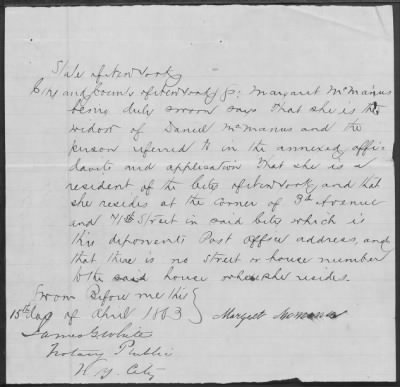 State of New York
City and County of New York ss: Margaret McManus
being duly sworn says that she is the
widow of Daniel McManus and the
person referred to in the annexed affi-
davits and application that she is a
resident of the City of New York and that
she resides at the corner of 3d Avenue
and 71st Street in said City which is
this deponents Post Office address, and
that there is no street or house number
to the said house where she resides.
Sworn Before me this
15th day of April 1863 Margret McManus
James G White
Notary Public
N.Y. City